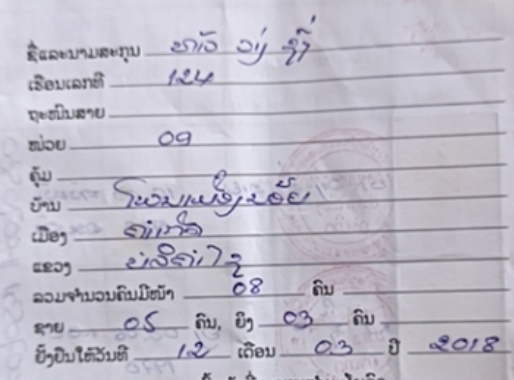 ຊື່ແລະນາມສະກຸນ ທ້າວ ວ່າງ ຊົ່ງ
ເຮືອນເລກທີ 124
ຖະໜົນສາຍ
ໜ່ວຍ 09
ຄຸ້ມ
ບ້ານ ໂພນແພງນ້ອຍ
ເມືອງ ຄຳເກີດ
ແຂວງ ບໍລິຄຳໄຊ
ລວມຈຳນວນຄົນມີໜ້າ 08 ຄົນ
ຊາຍ 05 ຄົນ, ຍິງ 03 ຄົນ
ຢັ້ງຢືນໃຫ້ວັນທີ 12 ເດືອນ 03 ປີ 2018